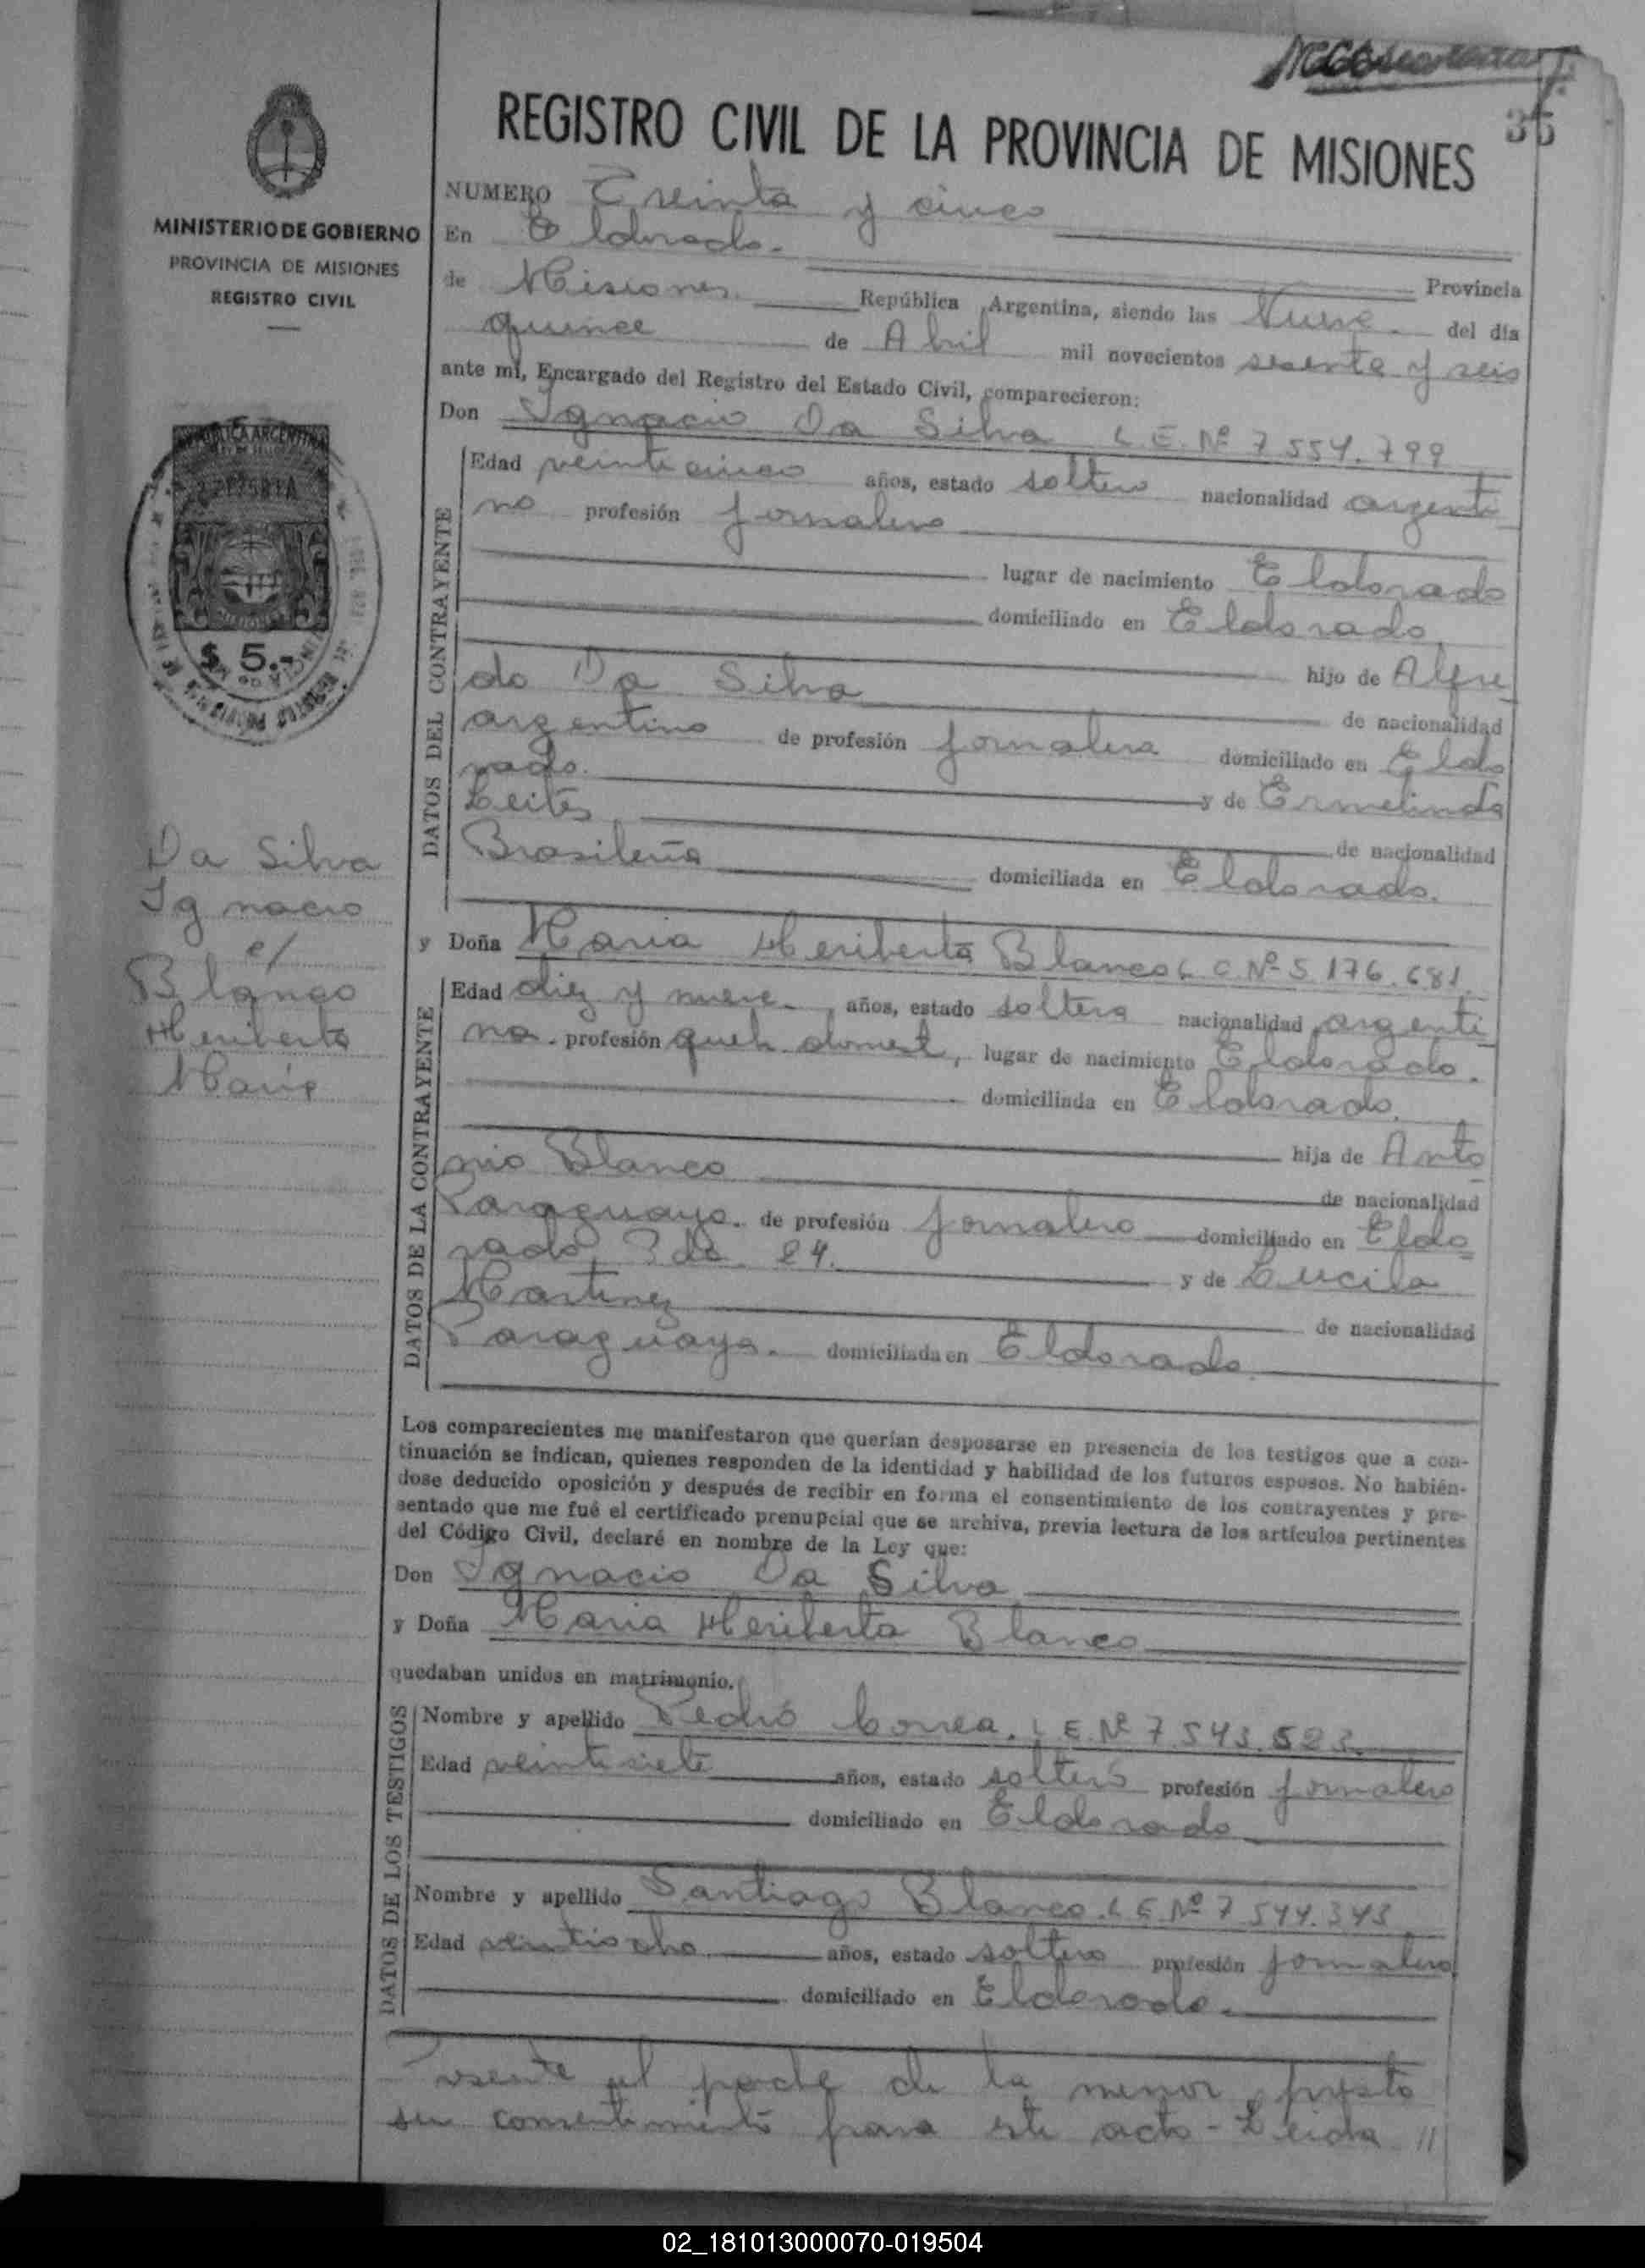 35
REGISTRO CIVIL DE LA PROVINCIA DE MISIONES
MINISTERIO DE GOBIERNO
PROVINCIA DE MISIONES
REGISTRO CIVIL
REPUBLICA ARGENTINA
$ 5.-
Da Silva
Ignacio
c/
Blanco
Heriberta
Maria
NUMERO Treinta y cinco
En Eldorado. Provincia
de Misiones República Argentina, siendo las Nueve del día
quince de Abril mil novecientos sesenta y seis
ante mí, Encargado del Registro del Estado Civil, comparecieron:
Don Ignacio Da Silva L. E. Nº 7.554.799
DATOS DEL CONTRAYENTE
Edad veinticinco años, estado soltero nacionalidad argenti
no profesión jornalero
lugar de nacimiento Eldorado
domiciliado en Eldorado
hijo de Alfre
do Da Silva de nacionalidad
argentino de profesión jornalero domiciliado en Eldo
rado. y de Ermelinda
Leites de nacionalidad
Brasileña domiciliada en Eldorado.
y Doña Maria Heriberta Blanco L. C. Nº 5.176.681.
DATOS DE LA CONTRAYENTE
Edad diez y nueve años, estado soltera nacionalidad argenti
na. profesión queh. domest, lugar de nacimiento Eldorado.
domiciliada en Eldorado.
hija de Anto
nio Blanco de nacionalidad
Paraguayo. de profesión jornalero domiciliado en Eldo
rado, 24. y de Lucila
Martinez de nacionalidad
Paraguaya. domiciliada en Eldorado
Los comparecientes me manifestaron que querían desposarse en presencia de los testigos que a con-
tinuación se indican, quienes responden de la identidad y habilidad de los futuros esposos. No habién-
dose deducido oposición y después de recibir en forma el consentimiento de los contrayentes y pre-
sentado que me fué el certificado prenupcial que se archiva, previa lectura de los artículos pertinentes
del Código Civil, declaré en nombre de la Ley que:
Don Ignacio Da Silva
y Doña Maria Heriberta Blanco
quedaban unidos en matrimonio.
DATOS DE LOS TESTIGOS
Nombre y apellido Pedro Correa. L. E. Nº 7.543.523
Edad veintisiete años, estado soltero profesión jornalero
domiciliado en Eldorado
Nombre y apellido Santiago Blanco. L. E. Nº 7.544.343
Edad veintiocho años, estado soltero profesión jornalero
domiciliado en Eldorado.
Presente el padre de la menor presta
su consentimiento para este acto - Leida //
02_181013000070-019504